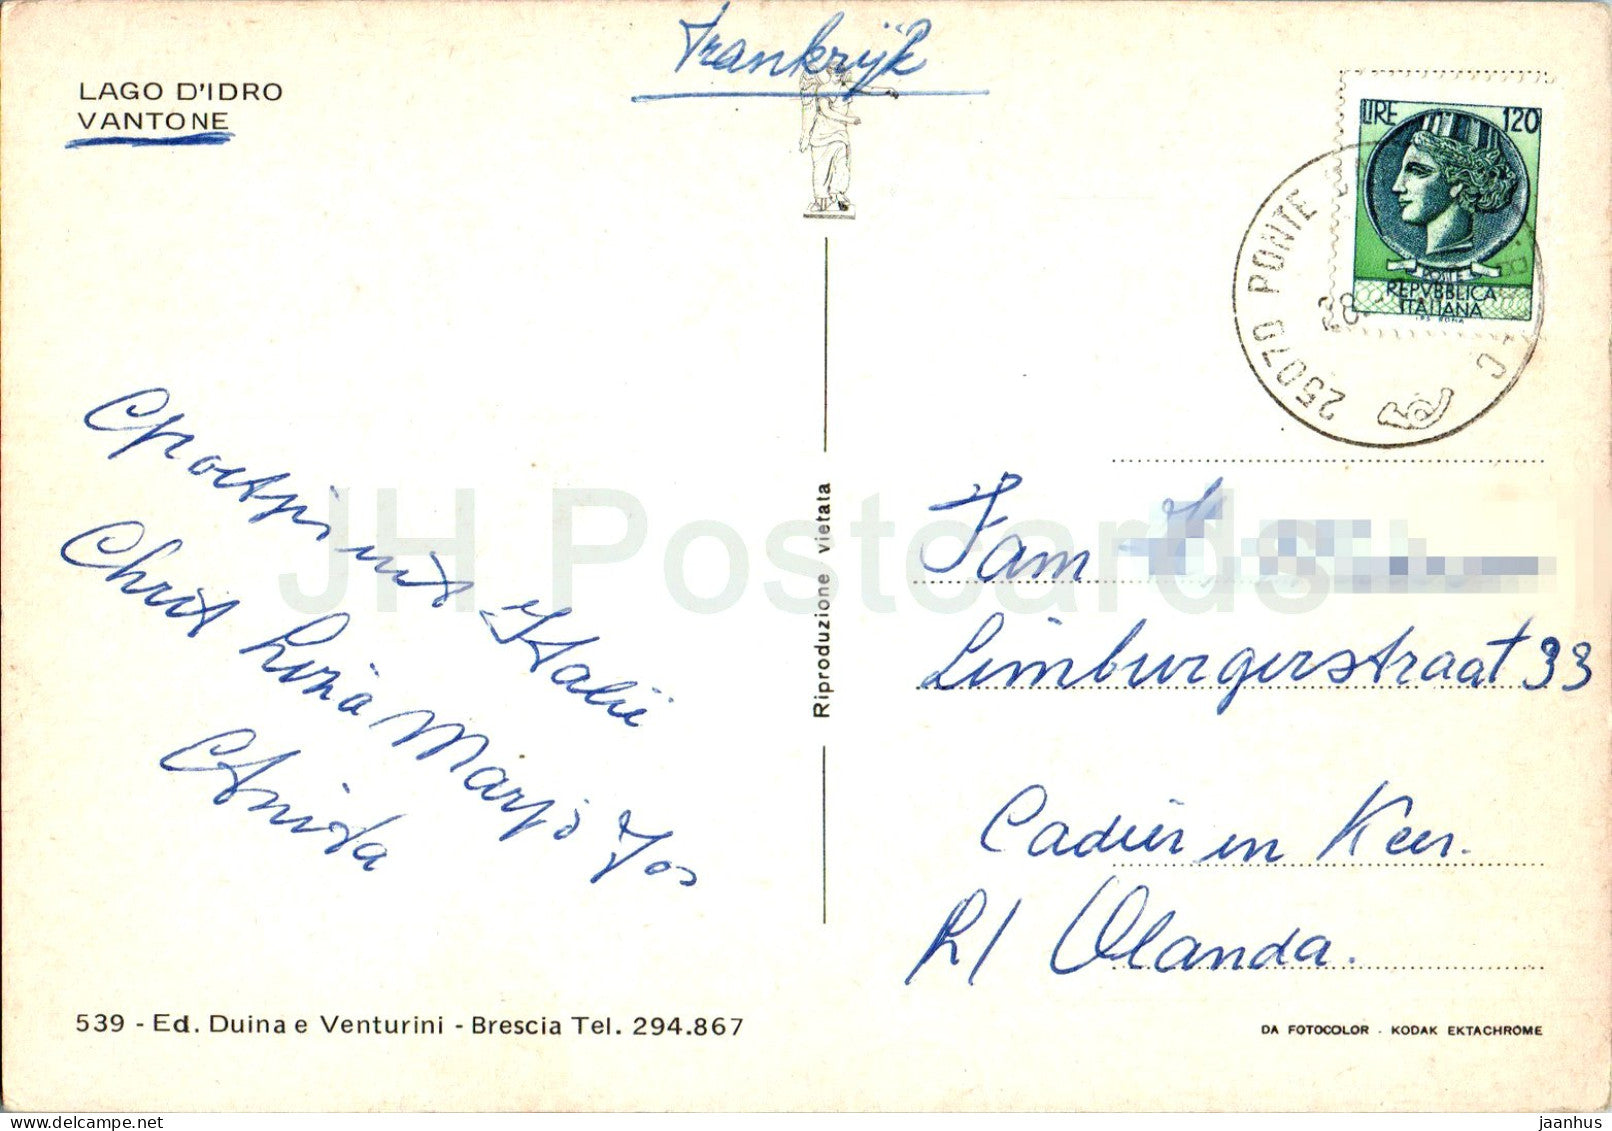 Frankrijk
LAGO D'IDRO
VANTONE
LIRE 120
POSTE
REPVBBLICA
ITALIANA
I.P.S. ROMA
25070 PONTE
28
Groetjes uit Italië
Christ Lizia Marjo Jos
Anita
JH Postcards
Riproduzione vietata
Fam
Limburgerstraat 33
Cadier en Keer.
Lł Olanda.
539 - Ed. Duina e Venturini - Brescia Tel. 294.867
DA FOTOCOLOR - KODAK EKTACHROME
jaanhus